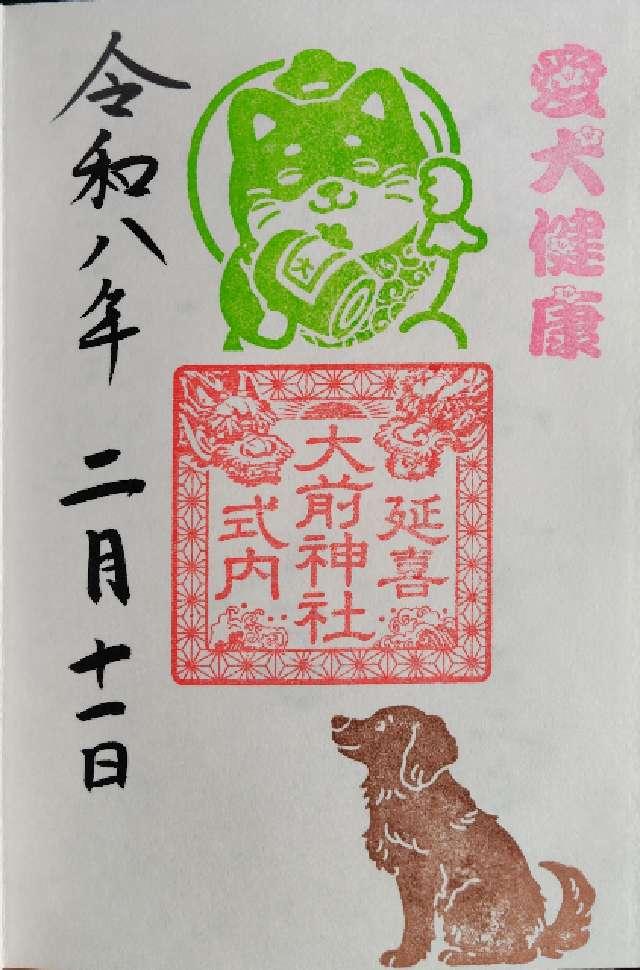 愛犬健康
延喜
大前神社
式内
犬
令和八年 二月十一日